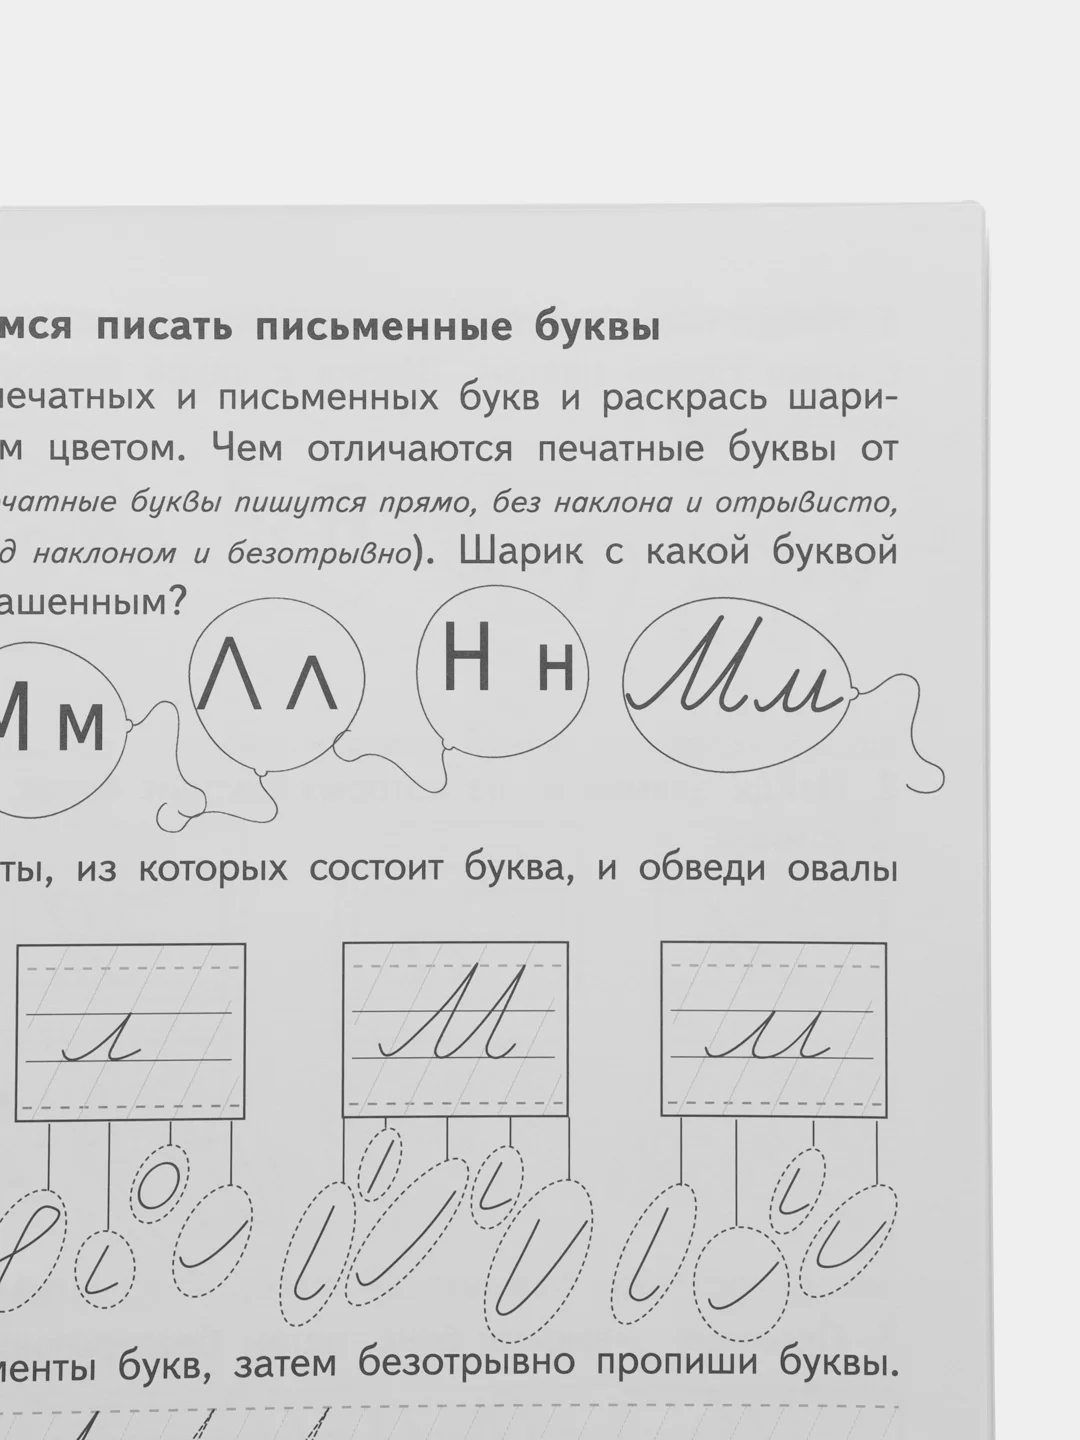 мся писать письменные буквы
печатных и письменных букв и раскрась шари-
м цветом. Чем отличаются печатные буквы от
чатные буквы пишутся прямо, без наклона и отрывисто,
д наклоном и безотрывно). Шарик с какой буквой
ашенным?
М м Л л Н н М м
ты, из которых состоит буква, и обведи овалы
л М м
менты букв, затем безотрывно пропиши буквы.